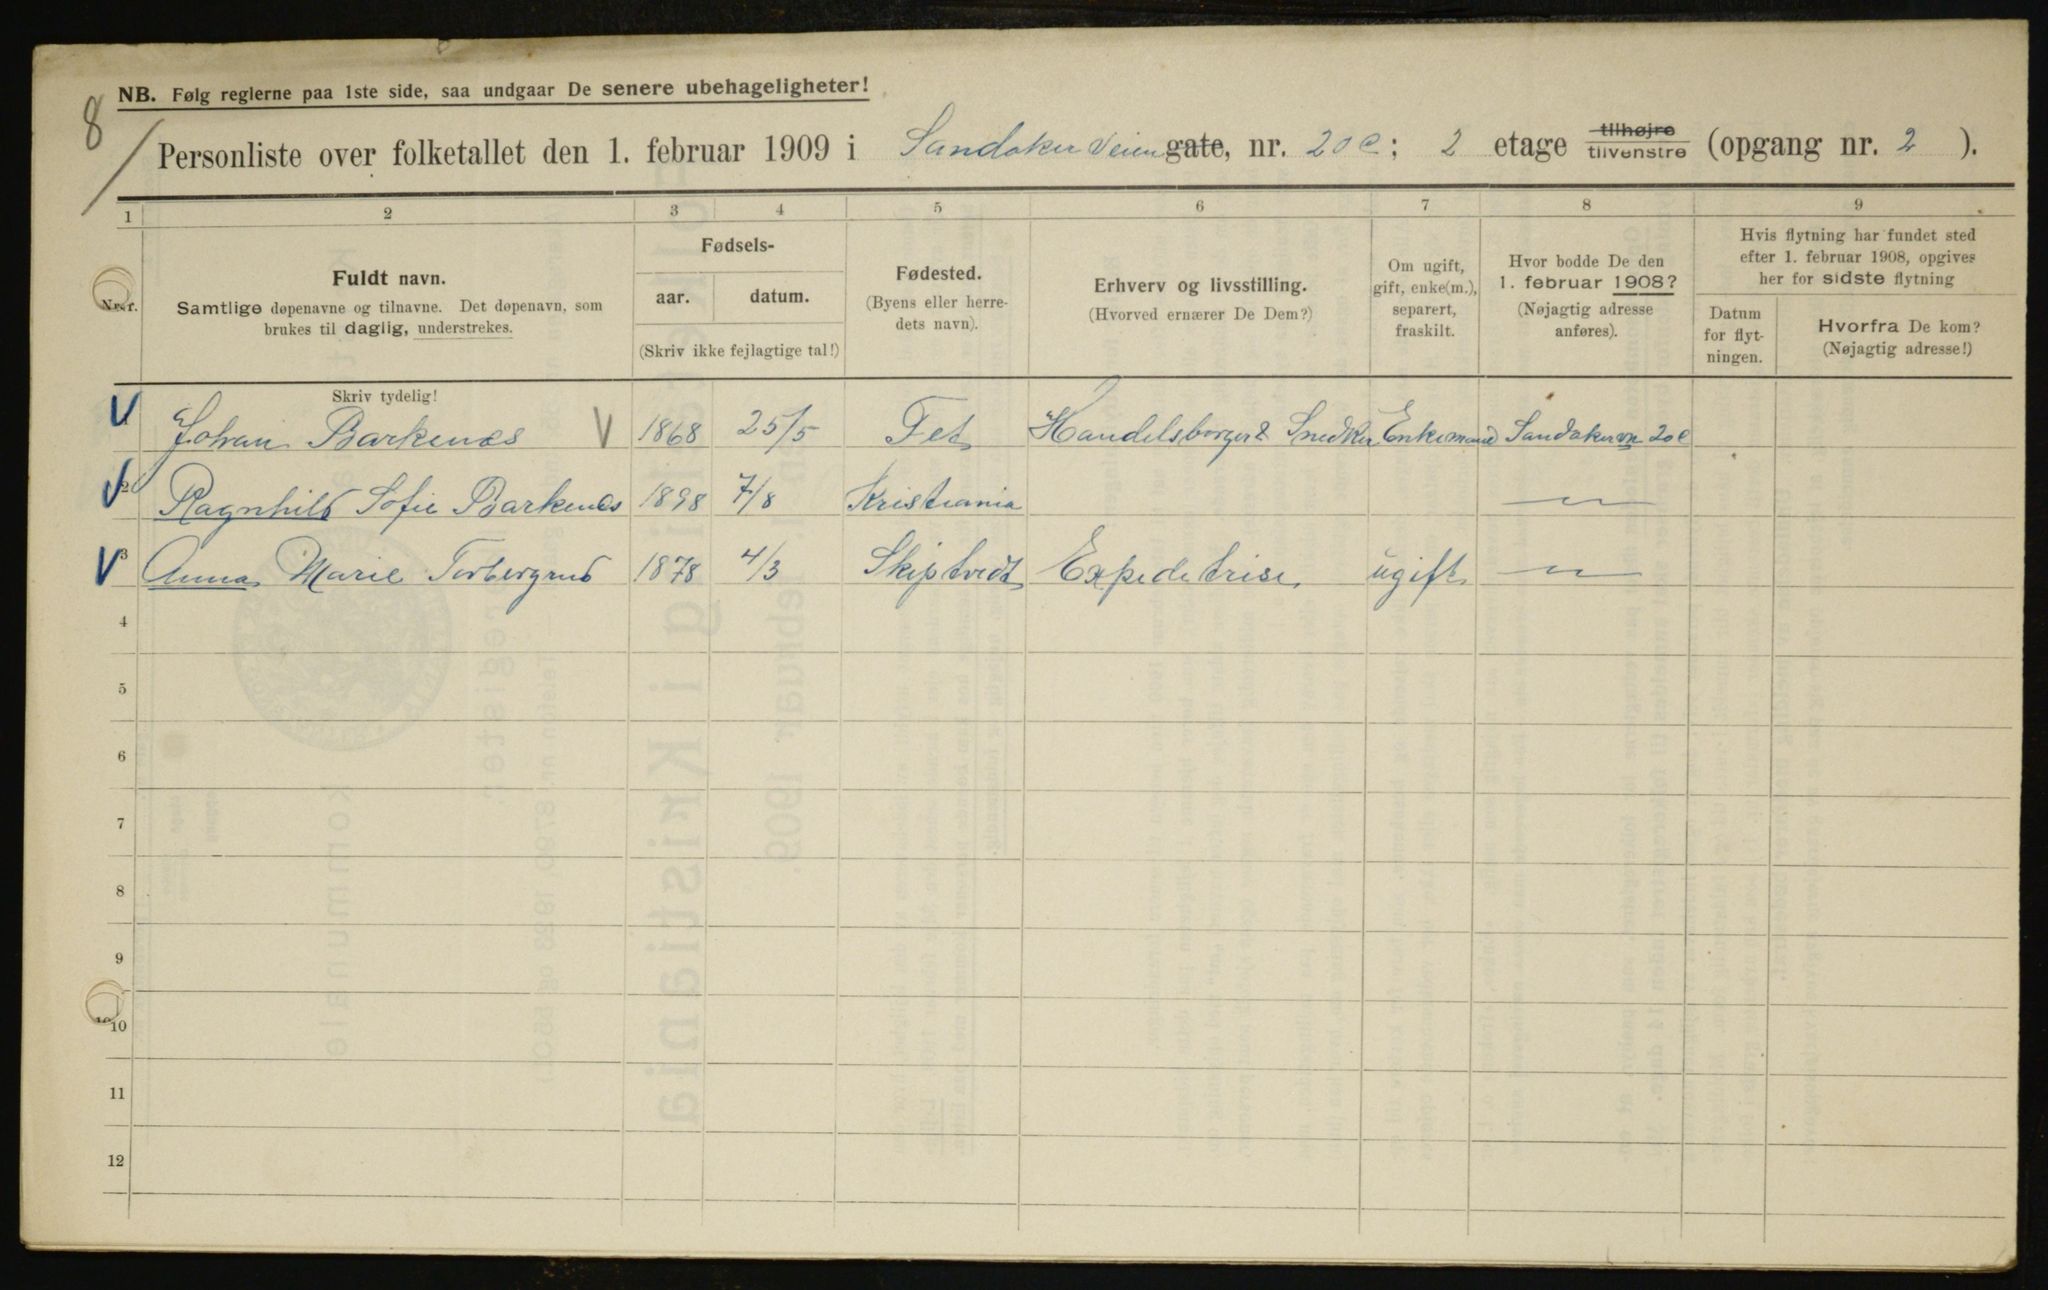 NB. Følg reglerne paa 1ste side, saa undgaar De senere ubehageligheter!
8
Personliste over folketallet den 1. februar 1909 i Sandakerveien gate, nr. 20 C; 2 etage tilhøjre tilvenstre (opgang nr. 2 ).
1 2 3 4 5 6 7 8 9
Nr.
Fuldt navn.
Samtlige døpenavne og tilnavne. Det døpenavn, som
brukes til daglig, understrekes.
Fødsels-
aar. datum.
(Skriv ikke fejlagtige tal!)
Fødested.
(Byens eller herre-
dets navn).
Erhverv og livsstilling.
(Hvorved ernærer De Dem?)
Om ugift,
gift, enke(m.),
separert,
fraskilt.
Hvor bodde De den
1. februar 1908?
(Nøjagtig adresse
anføres).
Hvis flytning har fundet sted
efter 1. februar 1908, opgives
her for sidste flytning
Datum
for flyt-
ningen.
Hvorfra De kom?
(Nøjagtig adresse!)
Skriv tydelig!
1 Johan Barkenæs V 1868 25/5 Fet Handelsborger & Snedker Enkemand Sandakervn 20 C
2 Ragnhild Sofie Barkenæs 1898 7/8 Kristiania —"—
3 Anna Marie Torbergrud 1878 4/3 Skiptvedt Expeditrise ugift —"—
4
5
6
7
8
9
10
11
12